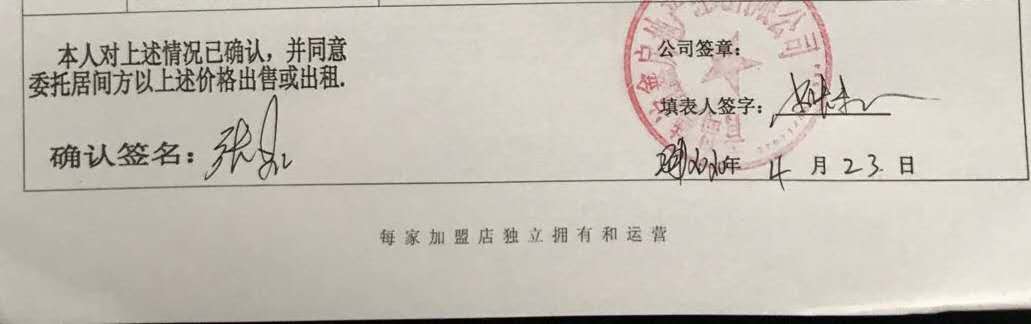 本人对上述情况已确认，并同意
委托居间方以上述价格出售或出租.
确认签名：张
公司签章：
填表人签字：
年 4 月 23 日
每家加盟店独立拥有和运营